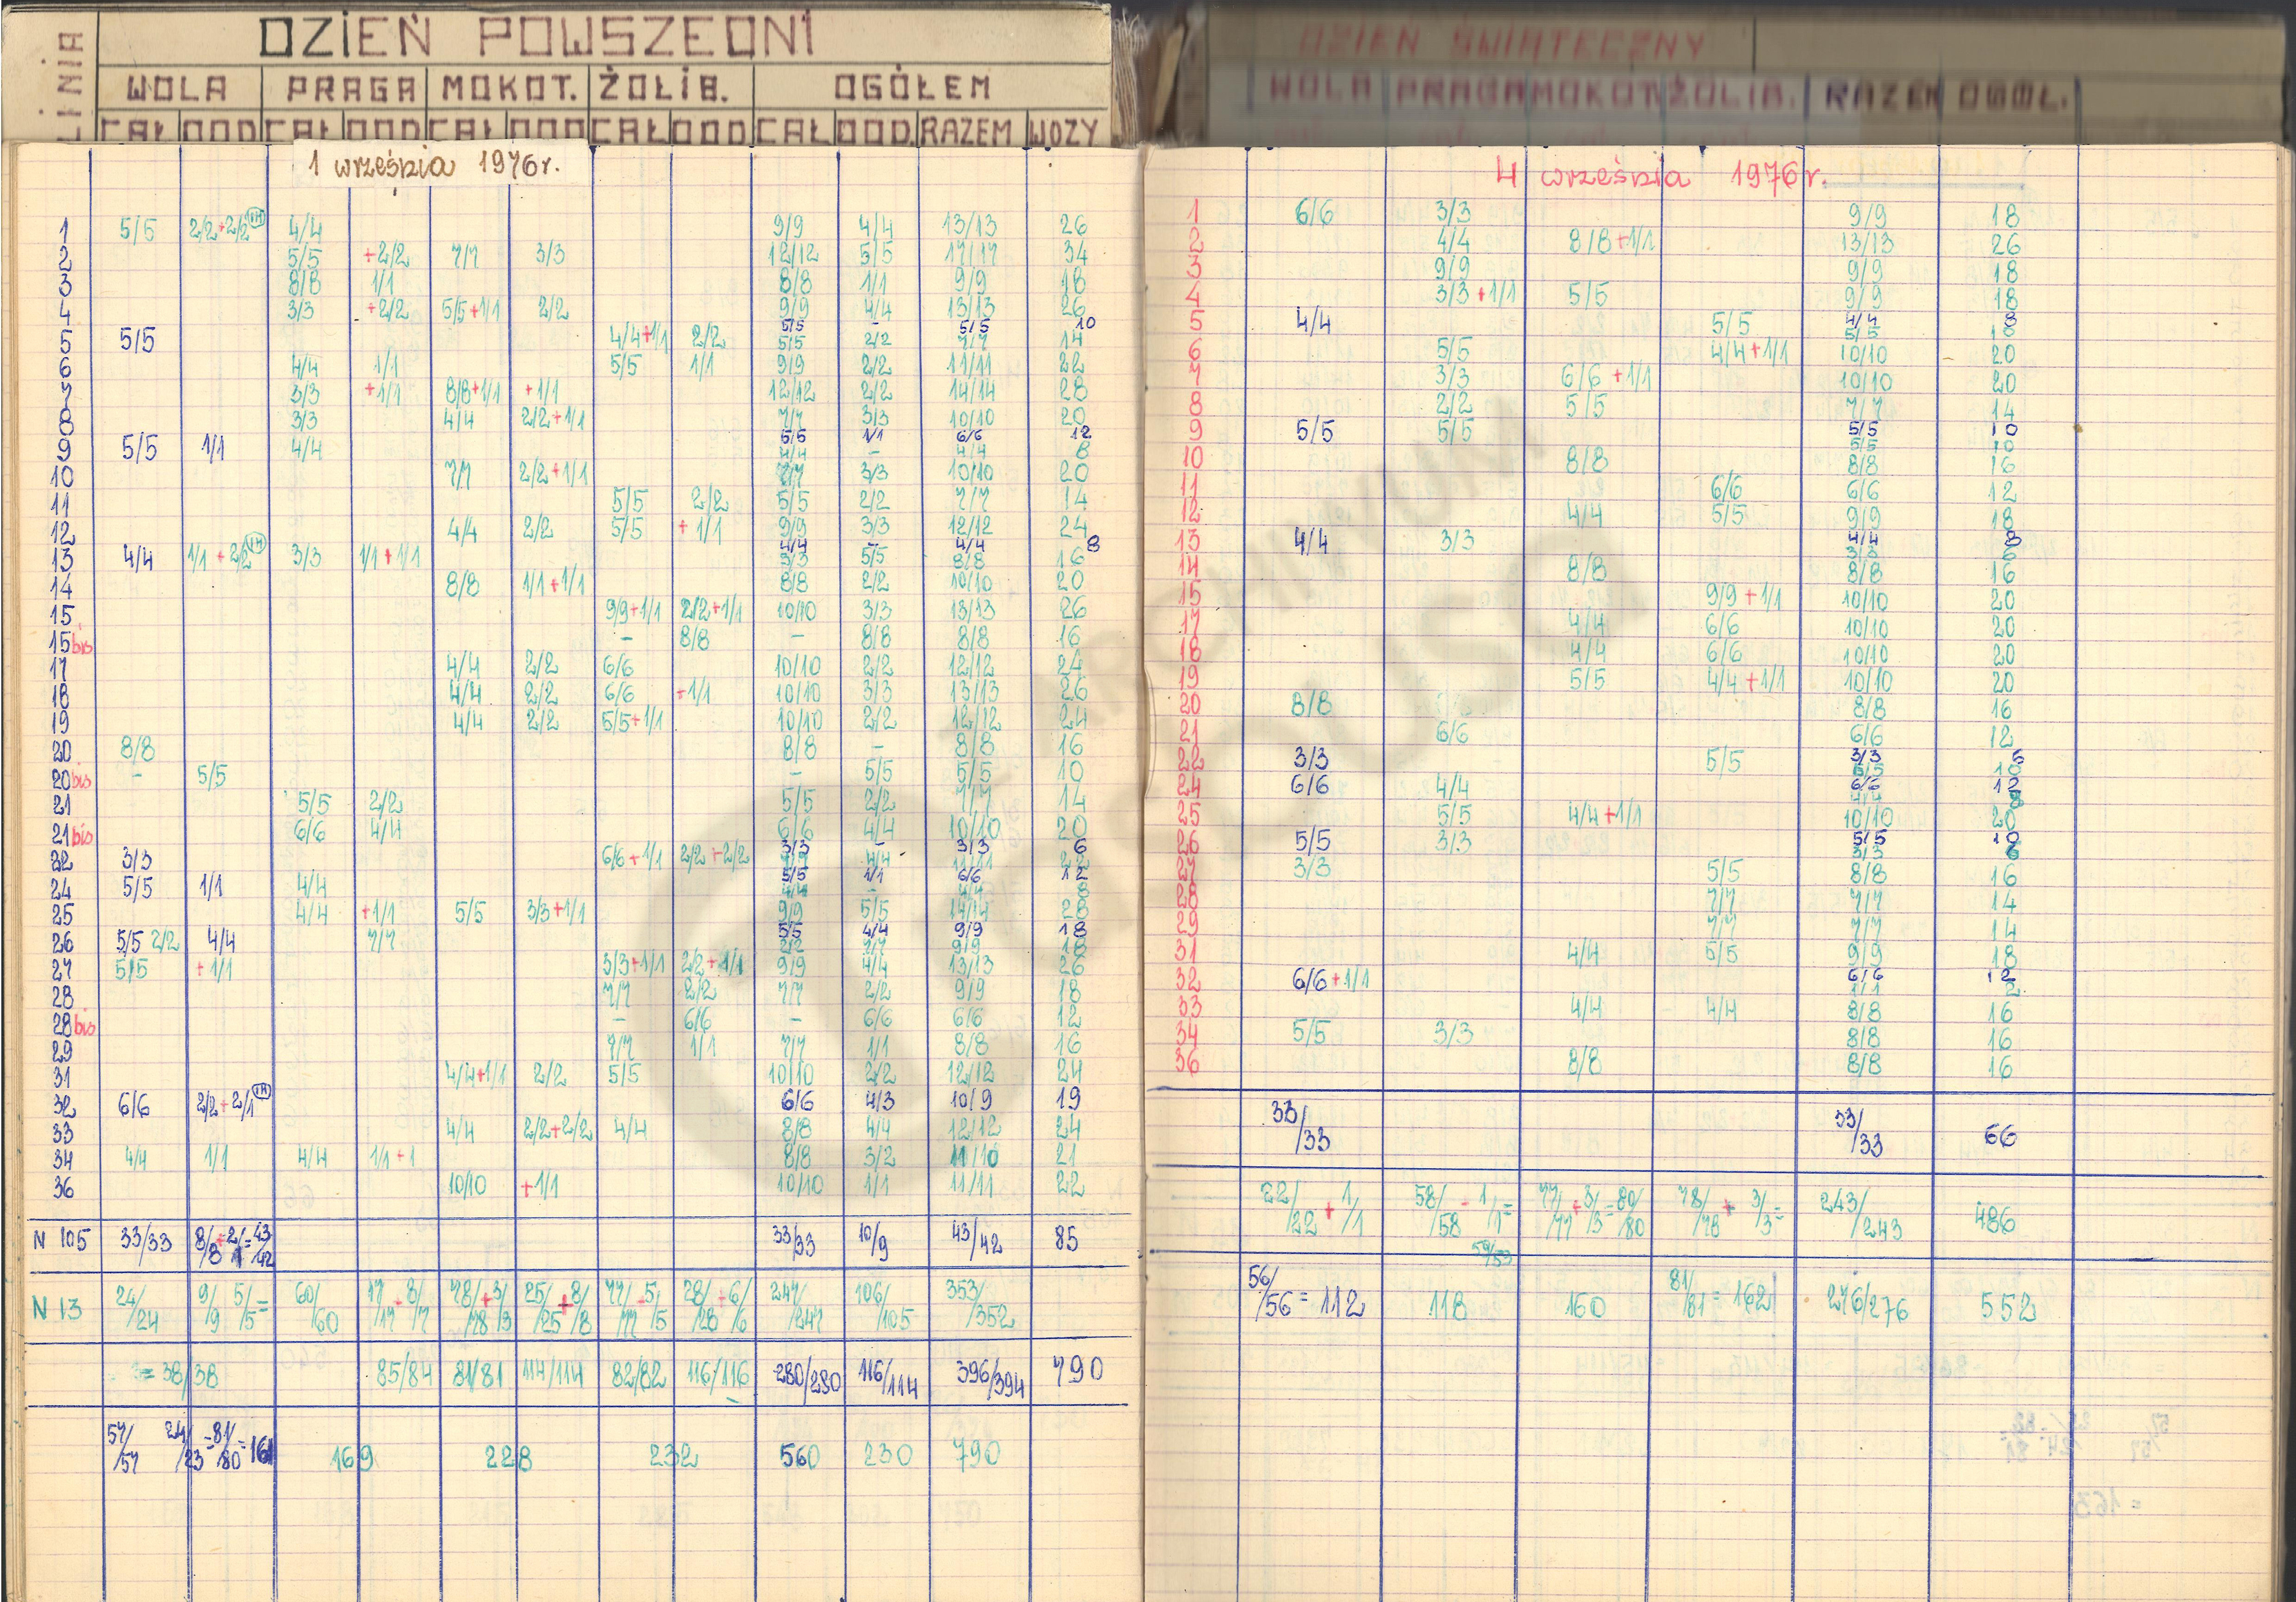 LINIA
DZIEŃ POWSZEDNI
WOLA PRAGA MOKOT. ŻOLIB. OGÓŁEM
CAŁ DOD CAŁ DOD CAŁ DOD CAŁ DOD CAŁ DOD. RAZEM WOZY
1 września 1976r.
1 5/5 2/2+2/2 1M 4/4 9/9 4/4 13/13 26
2 5/5 +2/2 7/7 3/3 12/12 5/5 17/17 34
3 8/8 1/1 8/8 1/1 9/9 18
4 3/3 +2/2 5/5+1/1 2/2 9/9 4/4 13/13 26
5/5 - 5/5 10
5 5/5 4/4+1/1 2/2 5/5 2/2 7/7 14
6 4/4 1/1 5/5 1/1 9/9 2/2 11/11 22
7 3/3 +1/1 8/8+1/1 +1/1 12/12 2/2 14/14 28
8 3/3 4/4 2/2+1/1 7/7 3/3 10/10 20
5/5 1/1 6/6 12
9 5/5 1/1 4/4 4/4 - 4/4 8
10 7/7 2/2+1/1 7/7 3/3 10/10 20
11 5/5 2/2 5/5 2/2 7/7 14
12 4/4 2/2 5/5 +1/1 9/9 3/3 12/12 24
4/4 - 4/4 8
13 4/4 1/1+2/2 1M 3/3 1/1+1/1 3/3 5/5 8/8 16
14 8/8 1/1+1/1 8/8 2/2 10/10 20
15 9/9+1/1 2/2+1/1 10/10 3/3 13/13 26
15bis - 8/8 - 8/8 8/8 16
17 4/4 2/2 6/6 10/10 2/2 12/12 24
18 4/4 2/2 6/6 +1/1 10/10 3/3 13/13 26
19 4/4 2/2 5/5+1/1 10/10 2/2 12/12 24
20 8/8 8/8 - 8/8 16
20bis - 5/5 - 5/5 5/5 10
21 5/5 2/2 5/5 2/2 7/7 14
21bis 6/6 4/4 6/6 4/4 10/10 20
3/3 - 3/3 6
22 3/3 6/6+1/1 2/2+2/2 4/4 11/11 22
5/5 1/1 6/6 12
24 5/5 1/1 4/4 4/4 - 4/4 8
25 4/4 +1/1 5/5 3/3+1/1 9/9 5/5 14/14 28
5/5 4/4 9/9 18
26 5/5 2/2 4/4 7/7 2/2 7/7 9/9 18
27 5/5 +1/1 3/3+1/1 2/2+1/1 9/9 4/4 13/13 26
28 7/7 2/2 7/7 2/2 9/9 18
28bis - 6/6 - 6/6 6/6 12
29 7/7 1/1 7/7 1/1 8/8 16
31 4/4+1/1 2/2 5/5 10/10 2/2 12/12 24
32 6/6 2/2+2/1 1M 6/6 4/3 10/9 19
33 4/4 2/2+2/2 4/4 8/8 4/4 12/12 24
34 4/4 1/1 4/4 1/1+1 8/8 3/2 11/10 21
36 10/10 +1/1 10/10 1/1 11/11 22
N 105 33/33 8/8+2/1=43/42 33/33 10/9 43/42 85
N 13 24/24 9/9 5/5= 60/60 17/17+8/7 78/78+3/3 25/25+8/8 77/77 5/5 28/28+6/6 247/247 106/105 353/352
=38/38 85/84 81/81 114/114 82/82 116/116 280/280 116/114 396/394 790
57/57 24/23=81/80=161 169 228 232 560 230 790
DZIEŃ ŚWIĄTECZNY
WOLA PRAGA MOKOT ŻOLIB. RAZEM OGÓŁ.
4 września 1976r.
1 6/6 3/3 9/9 18
2 4/4 8/8+1/1 13/13 26
3 9/9 9/9 18
4 3/3+1/1 5/5 9/9 18
5 4/4 5/5 4/4 8
5/5 10
6 5/5 4/4+1/1 10/10 20
7 3/3 6/6+1/1 10/10 20
8 2/2 5/5 7/7 14
9 5/5 5/5 5/5 10
5/5 10
10 8/8 8/8 16
11 6/6 6/6 12
12 4/4 5/5 9/9 18
13 4/4 3/3 4/4 8
3/3 6
14 8/8 8/8 16
15 9/9+1/1 10/10 20
17 4/4 6/6 10/10 20
18 4/4 6/6 10/10 20
19 5/5 4/4+1/1 10/10 20
20 8/8 8/8 16
21 6/6 6/6 12
22 3/3 5/5 3/3 6
5/5 10
24 6/6 4/4 6/6 12
4/4 8
25 5/5 4/4+1/1 10/10 20
26 5/5 3/3 5/5 10
3/3 6
27 3/3 5/5 8/8 16
28 7/7 7/7 14
29 7/7 7/7 14
31 4/4 5/5 9/9 18
32 6/6+1/1 6/6 12
1/1 2
33 4/4 4/4 8/8 16
34 5/5 3/3 8/8 16
36 8/8 8/8 16
33/33 33/33 66
22/22+1/1 58/58 1/1= 77/77+3/3=80/80 78/78+3/3= 243/243 486
59/59
56/56=112 118 160 81/81=162 276/276 552
ARCHIWUM
OMNIBUSA